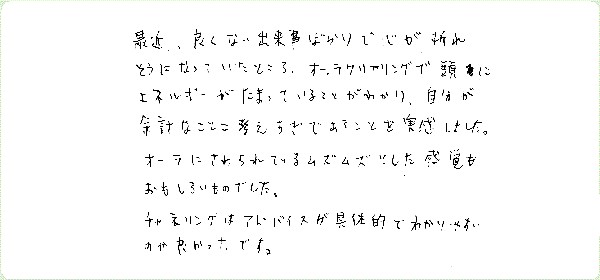 最近、良くない出来事ばかりで心が折れ
そうになっていたところ、オーラクリアリングで頭に
エネルギーがたまっていることがわかり、自分が
余計なことに考えすぎであることを実感しました。
オーラにさわられているムズムズとした感覚も
おもしろいものでした。
チャネリングはアドバイスが具体的でわかりやすい
のが良かったです。